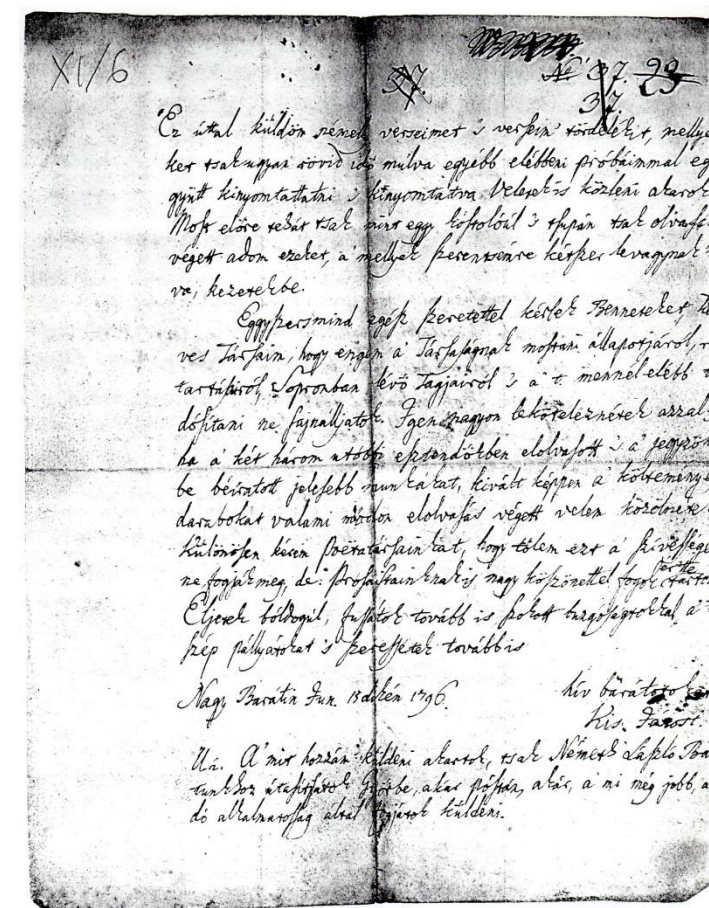 XI/6
37. № 37. 29
37.
Ez úttal küldöm némely verseimet 's versem töredékit, mellye
ket tsak ugyan rövid idő múlva egyébb elébbeni próbáimmal eg
gyütt kinyomtattatni 's kinyomtatva Veletek is közleni akarok
Most előre tehát tsak mint egy kóstolóúl 's tsupán tsak olvasás
végett adom ezeket, a' mellyek szerentsémre kétszer levagynak
va, kezetekbe.
Eggyszersmind egész szeretettel kérlek Benneteket, Ke
ves Társaim, hogy engem a' Társaságnak mostani állapotjáról,
Sopronban lévő Tagjairól 's a' t. mennél elébb
dósítani ne sajnálljatok. Igen nagyon leköteleznétek azzal
ha a' két három utóbbi esztendőkben elolvasott 's a' jegyzőkön
be béiratott jelesebb munkákat, kivált képpen a' költeménye
darabokat valami módon elolvasás végett velem közölnétek
Különösen kérem Poetatársaimkat, hogy tőlem ezt a' szívessége
ne fogják meg, de Prosaistainknak is nagy köszönettel fogok érette
Éljetek bóldogúl, fussátok tovább is szokott buzgóságtokkal a'
szép pállyátokat 's szeressétek továbbis
Nagy Barátin Jun. 15dikén 1796. hív bárátotokat
Kis Jánost.
A' mit hozzám küldeni akartok, tsak Németh László Ba
tunkhoz útasítsátok Győrbe, akár póstán, akár, a' mi még jobb, a
dó alkalmatosság által fogjátok küldeni.